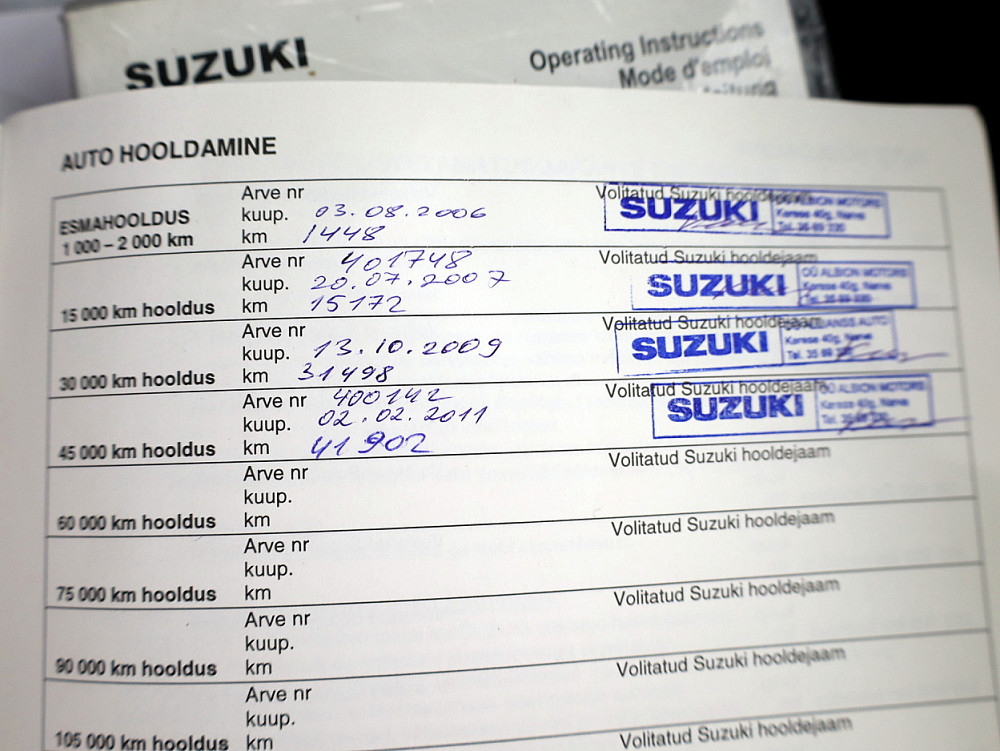 SUZUKI
Operating Instructions
Mode d'emploi
AUTO HOOLDAMINE
ESMAHOOLDUS
1 000 – 2 000 km
Arve nr
kuup. 03.08.2006
km 1448
Volitatud Suzuki hooldejaam
SUZUKI
OÜ ALBION MOTORS
Kerese 40g, Narva
15 000 km hooldus
Arve nr 401748
kuup. 20.07.2007
km 15172
Volitatud Suzuki hooldejaam
SUZUKI
OÜ ALBION MOTORS
Kerese 40g, Narva
30 000 km hooldus
Arve nr
kuup. 13.10.2009
km 31498
Volitatud Suzuki hooldejaam
SUZUKI
Kerese 40g, Narva
45 000 km hooldus
Arve nr 400142
kuup. 02.02.2011
km 41902
Volitatud Suzuki hooldejaam
SUZUKI
OÜ ALBION MOTORS
Kerese 40g, Narva
60 000 km hooldus
Arve nr
kuup.
km
Volitatud Suzuki hooldejaam
75 000 km hooldus
Arve nr
kuup.
km
Volitatud Suzuki hooldejaam
90 000 km hooldus
Arve nr
kuup.
km
Volitatud Suzuki hooldejaam
105 000 km hooldus
Arve nr
kuup.
km
Volitatud Suzuki hooldejaam
Volitatud Suzuki hooldejaam